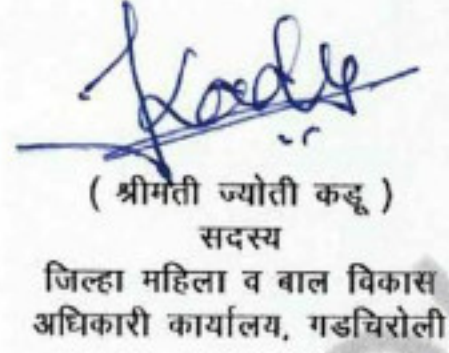 ( श्रीमती ज्योती कडू )
सदस्य
जिल्हा महिला व बाल विकास
अधिकारी कार्यालय, गडचिरोली